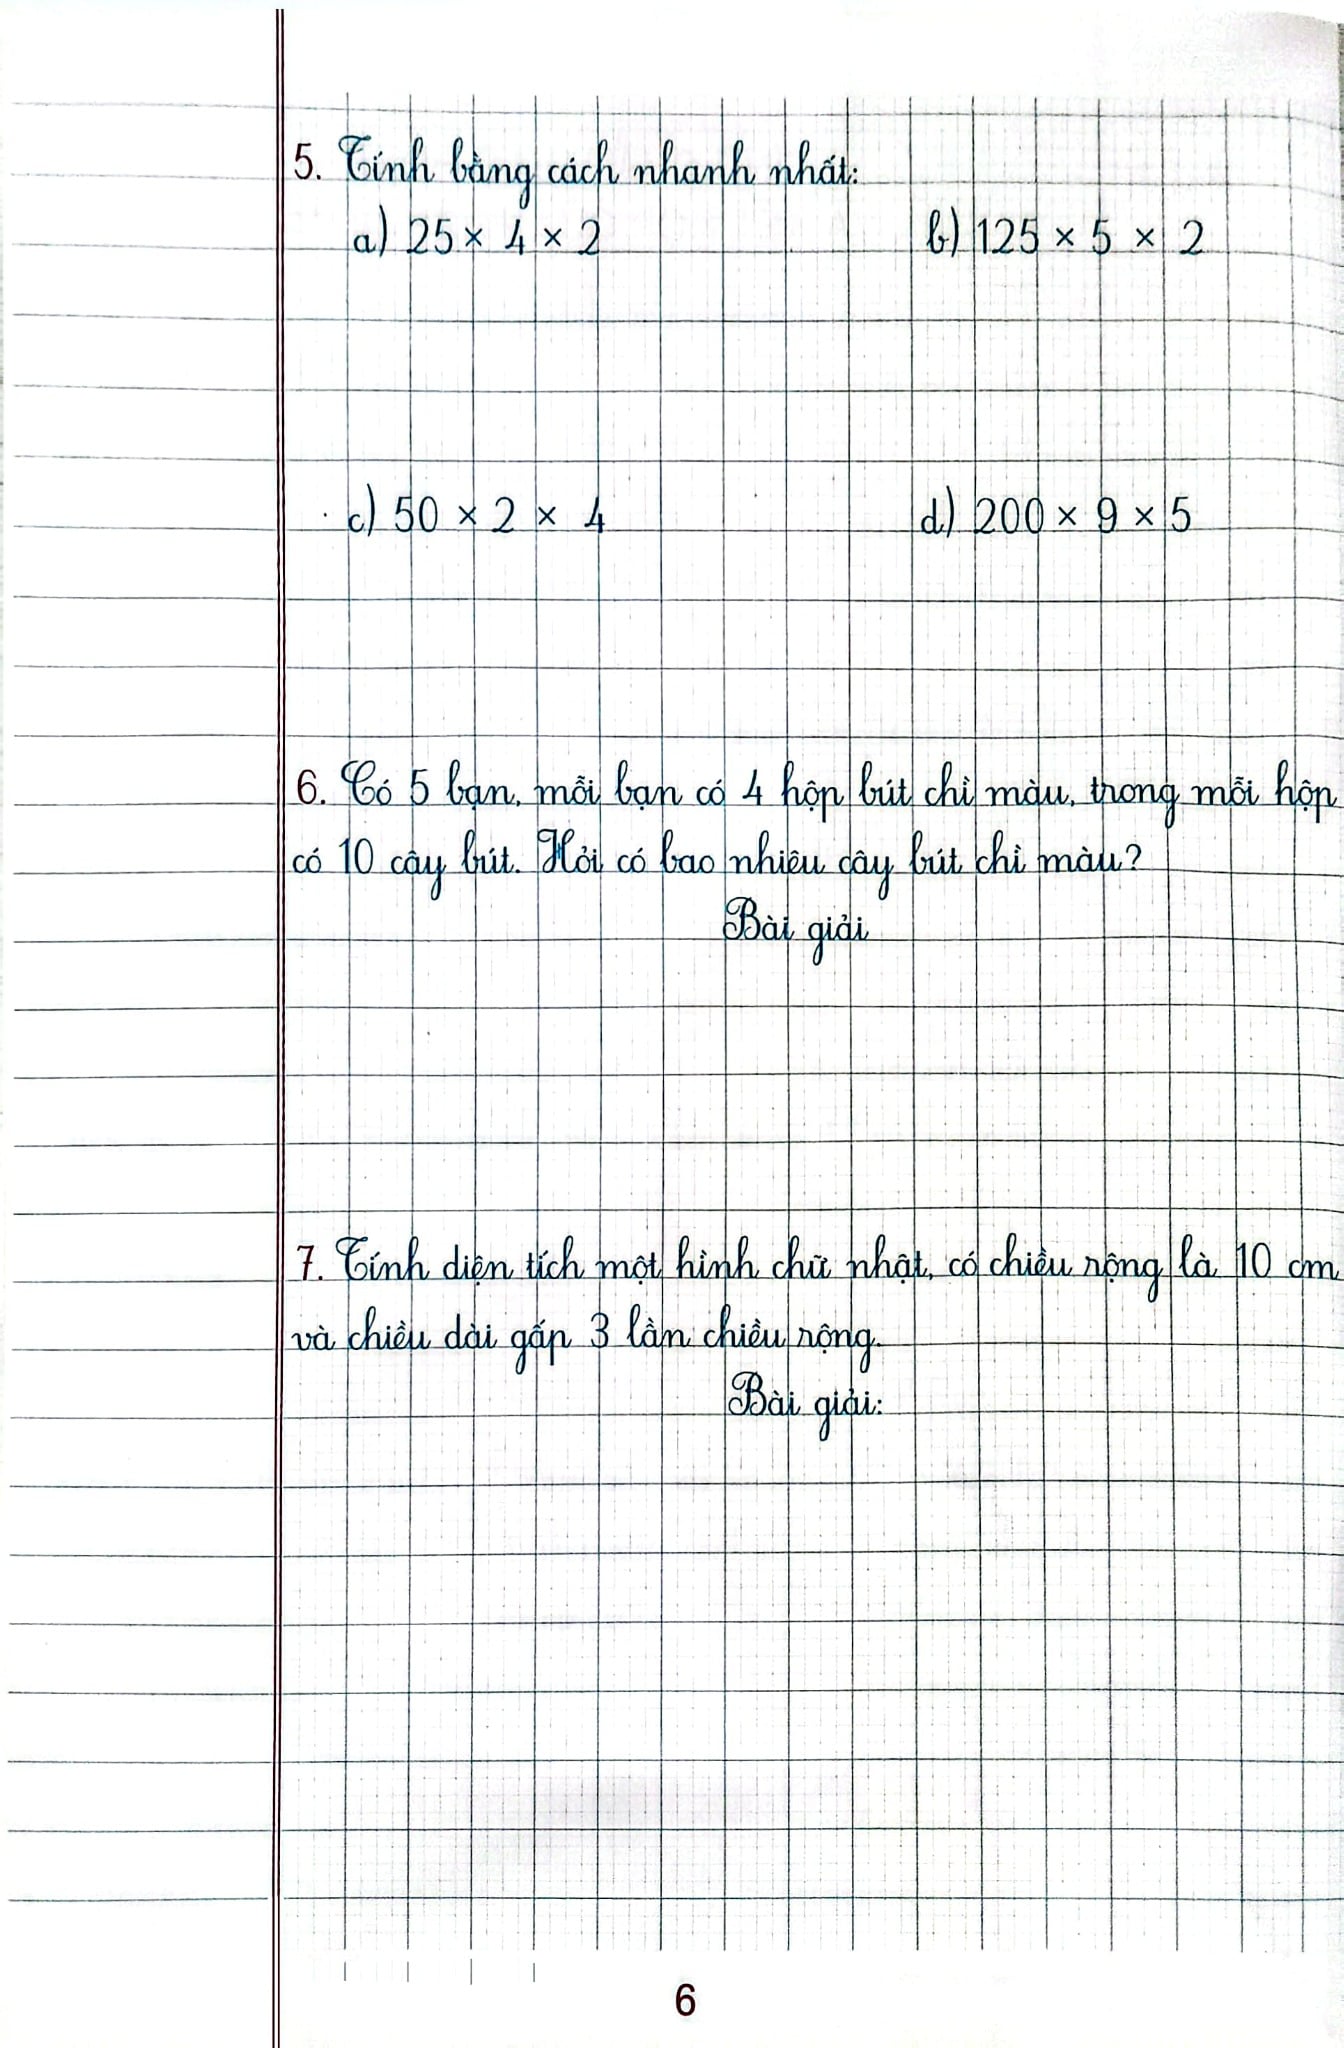 5. Tính bằng cách nhanh nhất:
a) 25 × 4 × 2 b) 125 × 5 × 2
c) 50 × 2 × 4 d) 200 × 9 × 5
6. Có 5 bạn, mỗi bạn có 4 hộp bút chì màu, trong mỗi hộp
có 10 cây bút. Hỏi có bao nhiêu cây bút chì màu?
Bài giải
7. Tính diện tích một hình chữ nhật, có chiều rộng là 10 cm
và chiều dài gấp 3 lần chiều rộng.
Bài giải:
6